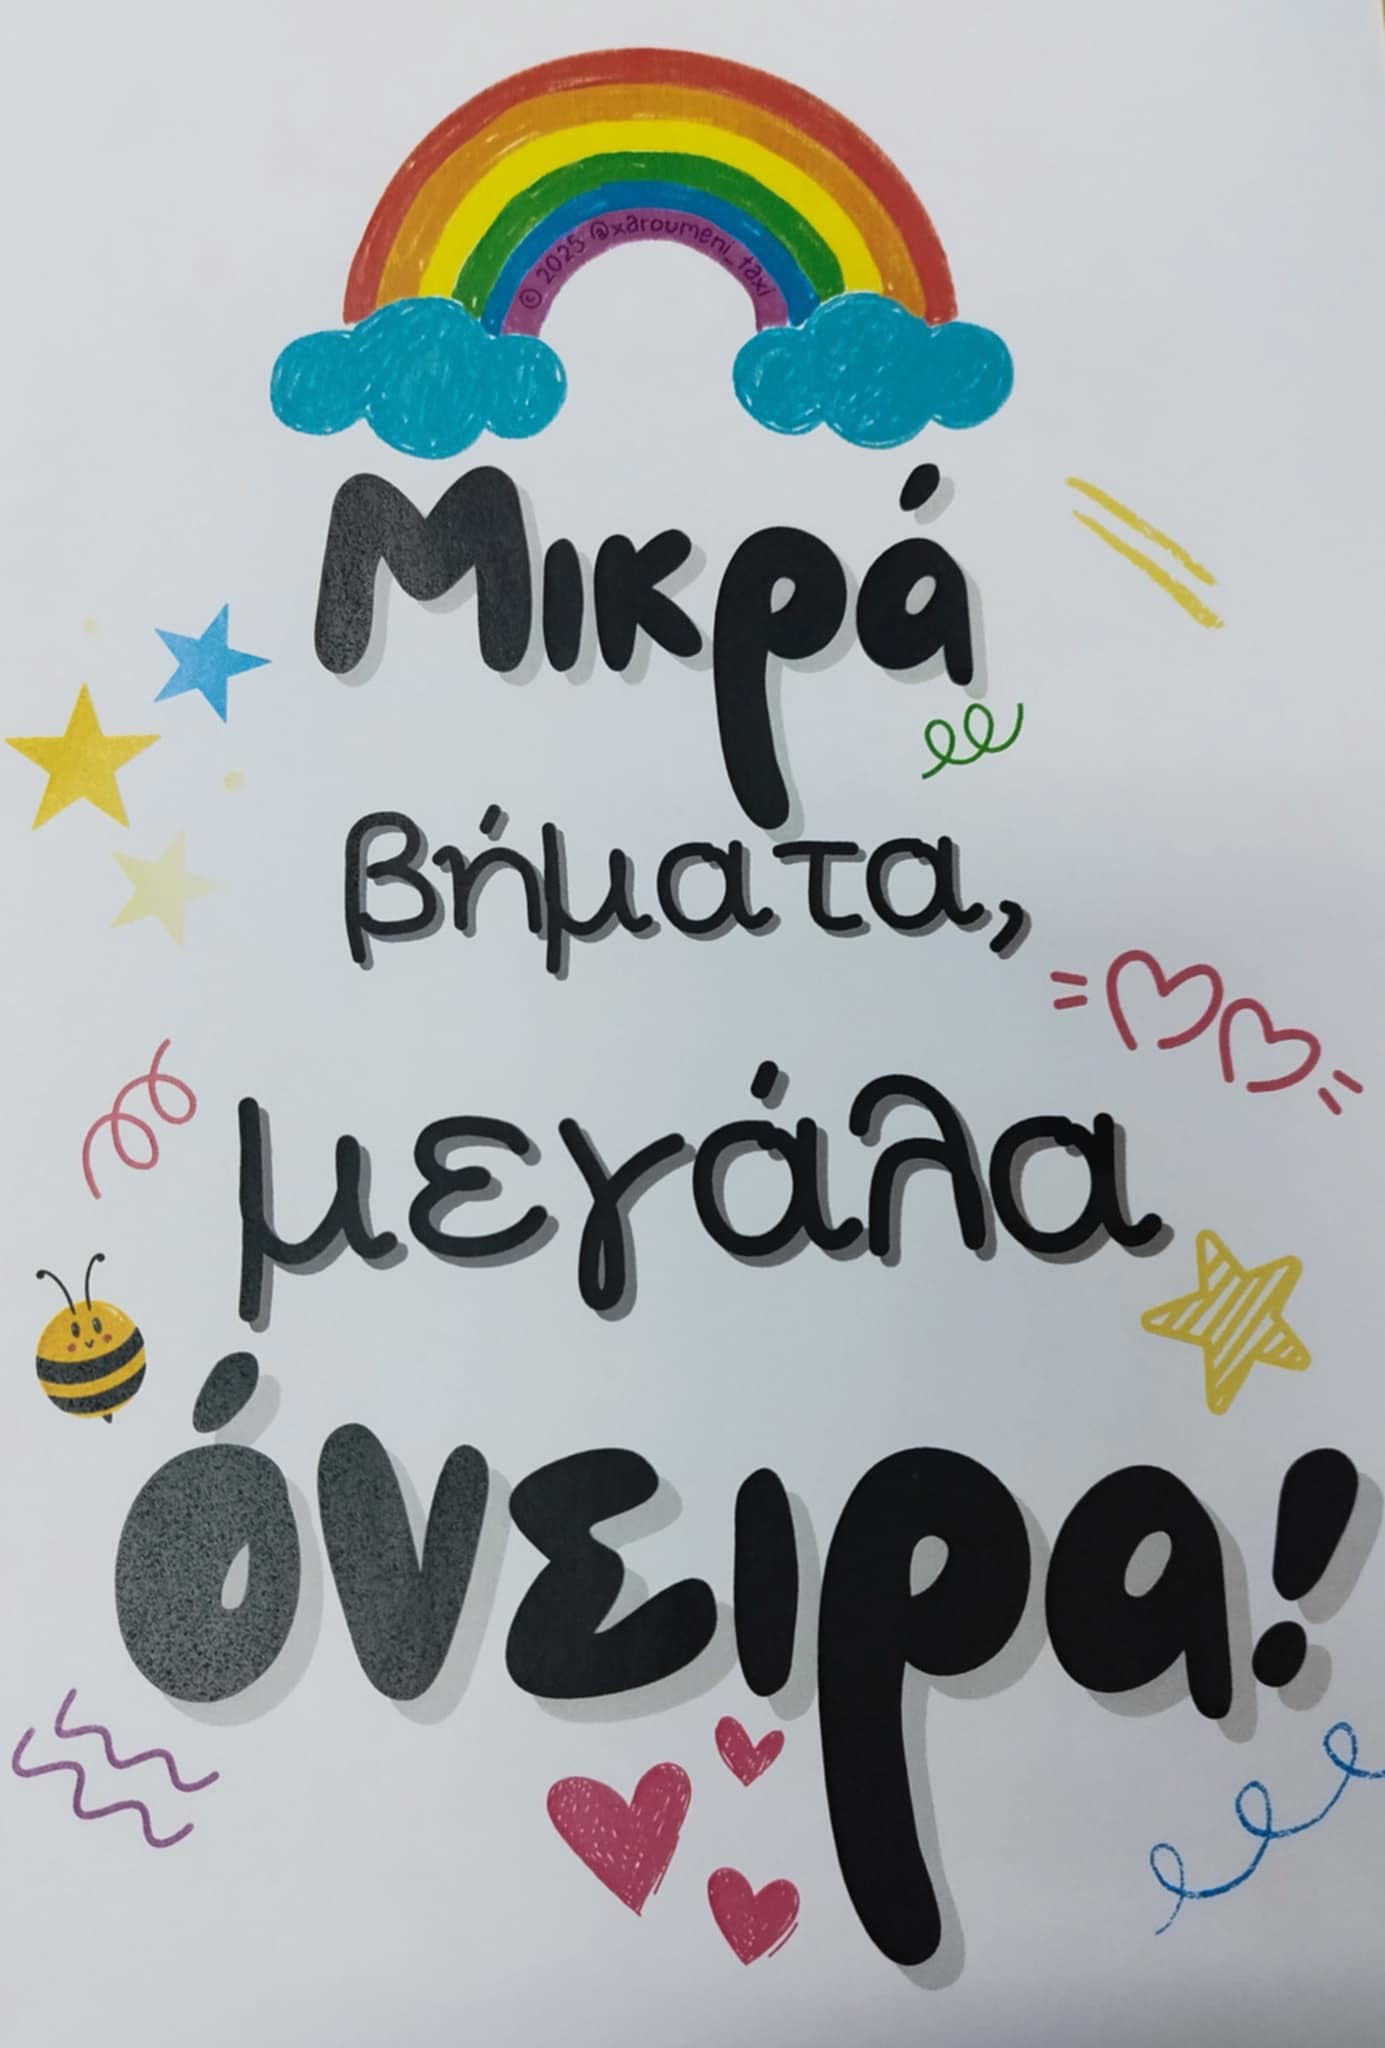 © 2025 @xaroumeni_taxi
Μικρά
βήματα,
μεγάλα
όνειρα!